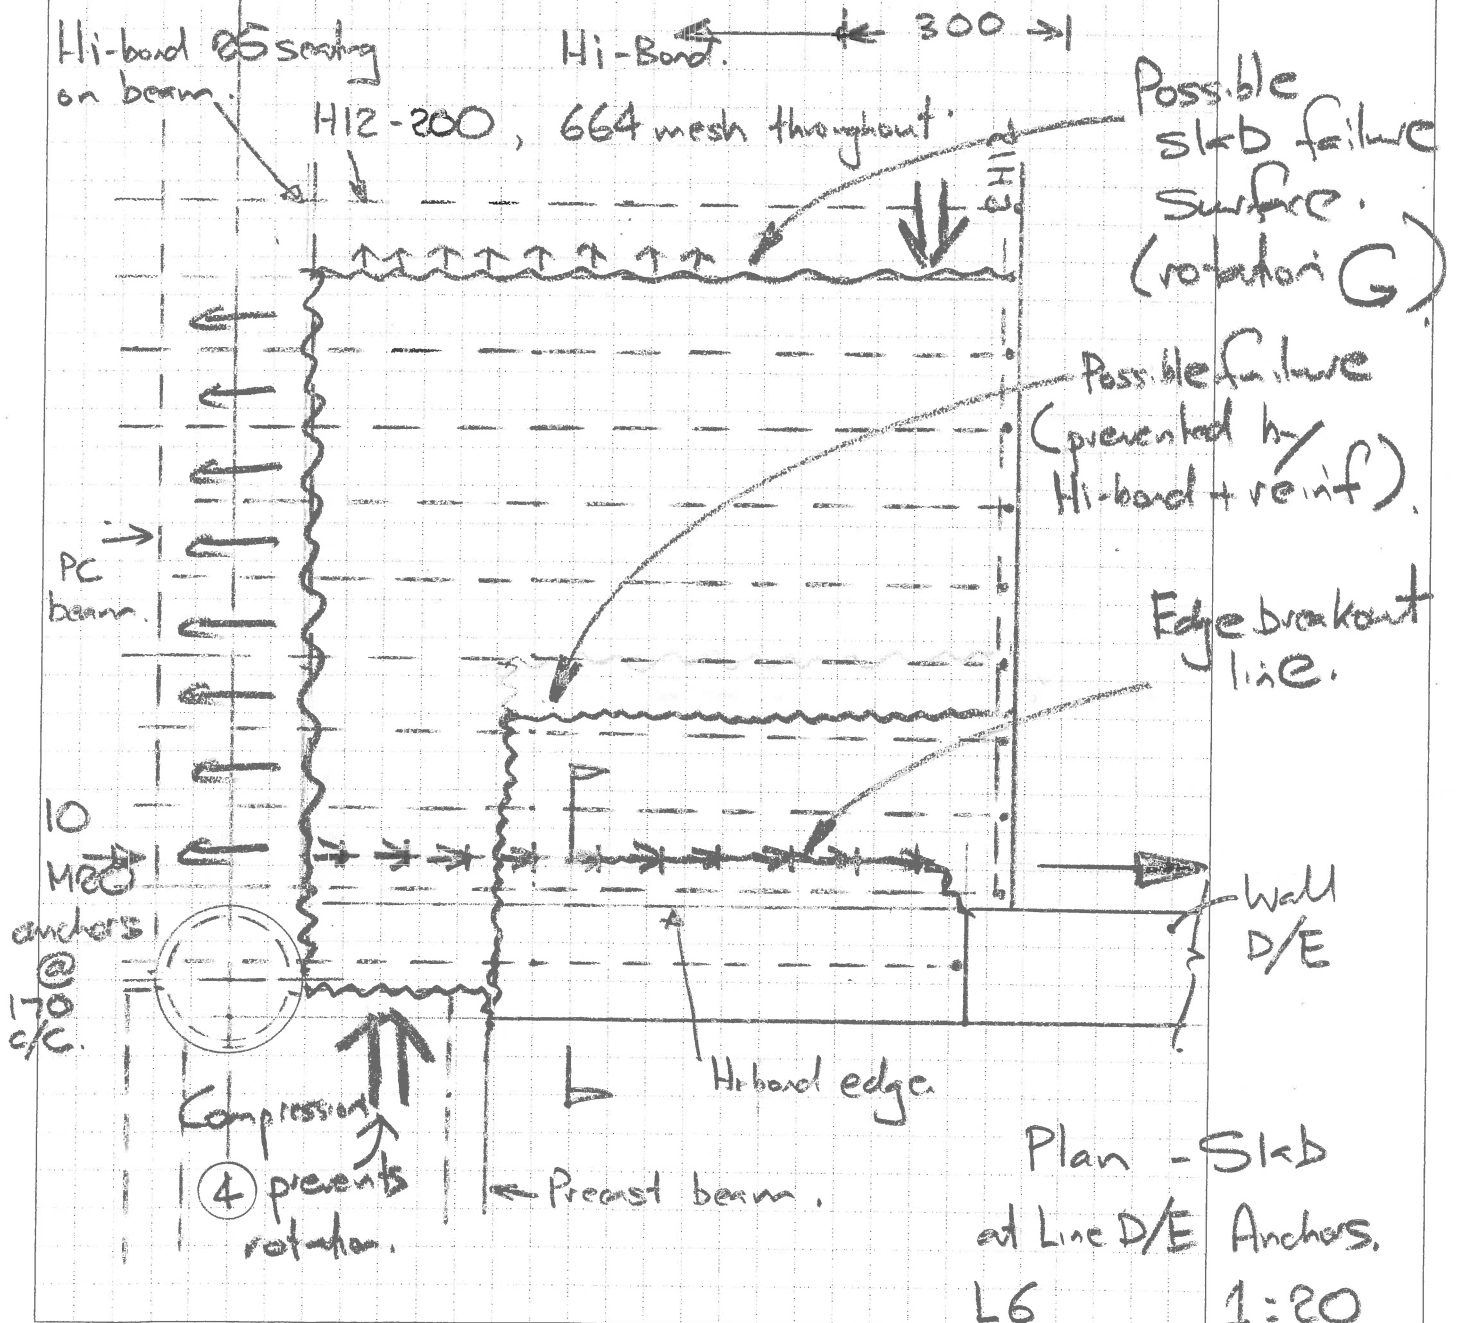 Hi-bond 25 seating
on beam.
Hi-Bond.
300
H12-200, 664 mesh throughout
Possible
slab failure
surface.
(rotation G)
Possible failure
(prevented by
Hi-bond + reinf).
PC
beam.
Edge breakout
line.
10
M20
anchors
@
170
c/c.
Wall
D/E
Hibond edge.
Compression
prevents
rotation.
4
Precast beam.
Plan - Slab
at Line D/E Anchors.
L6 1:20